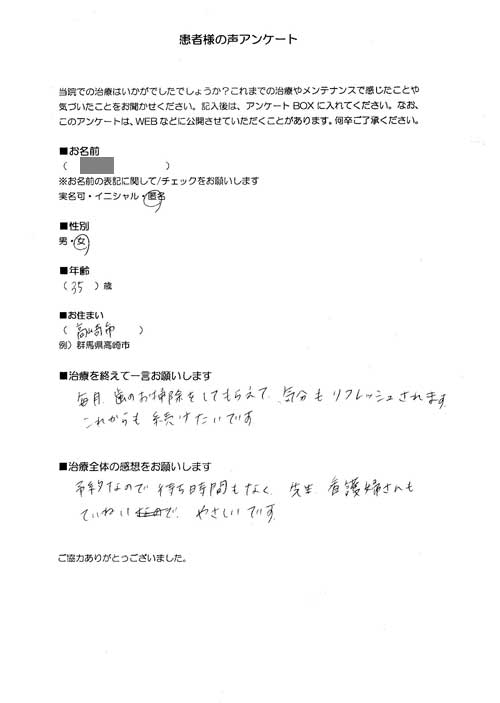 患者様の声アンケート
当院での治療はいかがでしたでしょうか？これまでの治療やメンテナンスで感じたことや
気づいたことをお聞かせください。記入後は、アンケート BOX に入れてください。なお、
このアンケートは、WEB などに公開させていただくことがあります。何卒ご了承ください。
■お名前
（　　　）
※お名前の表記に関して/チェックをお願いします
実名可・イニシャル・匿名
■性別
男・女
■年齢
（ 35 ）歳
■お住まい
（ 高崎市 ）
例）群馬県高崎市
■治療を終えて一言お願いします
毎月、歯のお掃除をしてもらえて、気分もリフレッシュされます。
これからも続けたいです
■治療全体の感想をお願いします
予約なので待ち時間もなく、先生、看護婦さんも
ていねいで、やさしいです。
ご協力ありがとうございました。